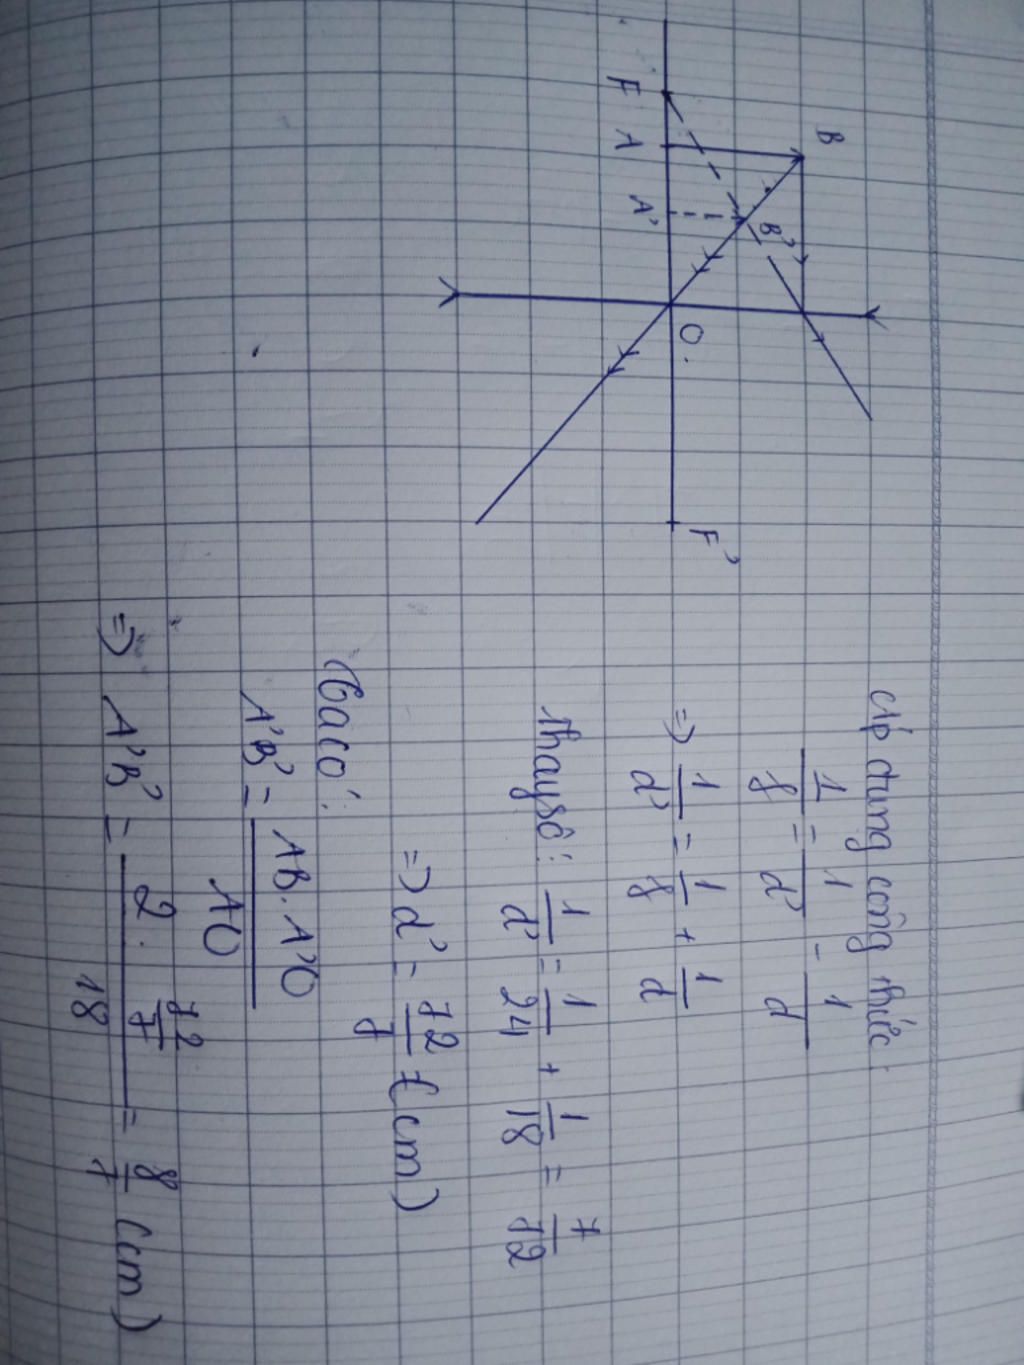 B
F A A' B' O F'
Áp dụng công thức:
1/f = 1/d' - 1/d
=> 1/d' = 1/f + 1/d
Thay số: 1/d' = 1/24 + 1/18 = 7/72
=> d' = 72/7 (cm)
Ta có:
A'B' = AB.A'O/AO
=> A'B' = 2.72/7/18 = 8/7 (cm)